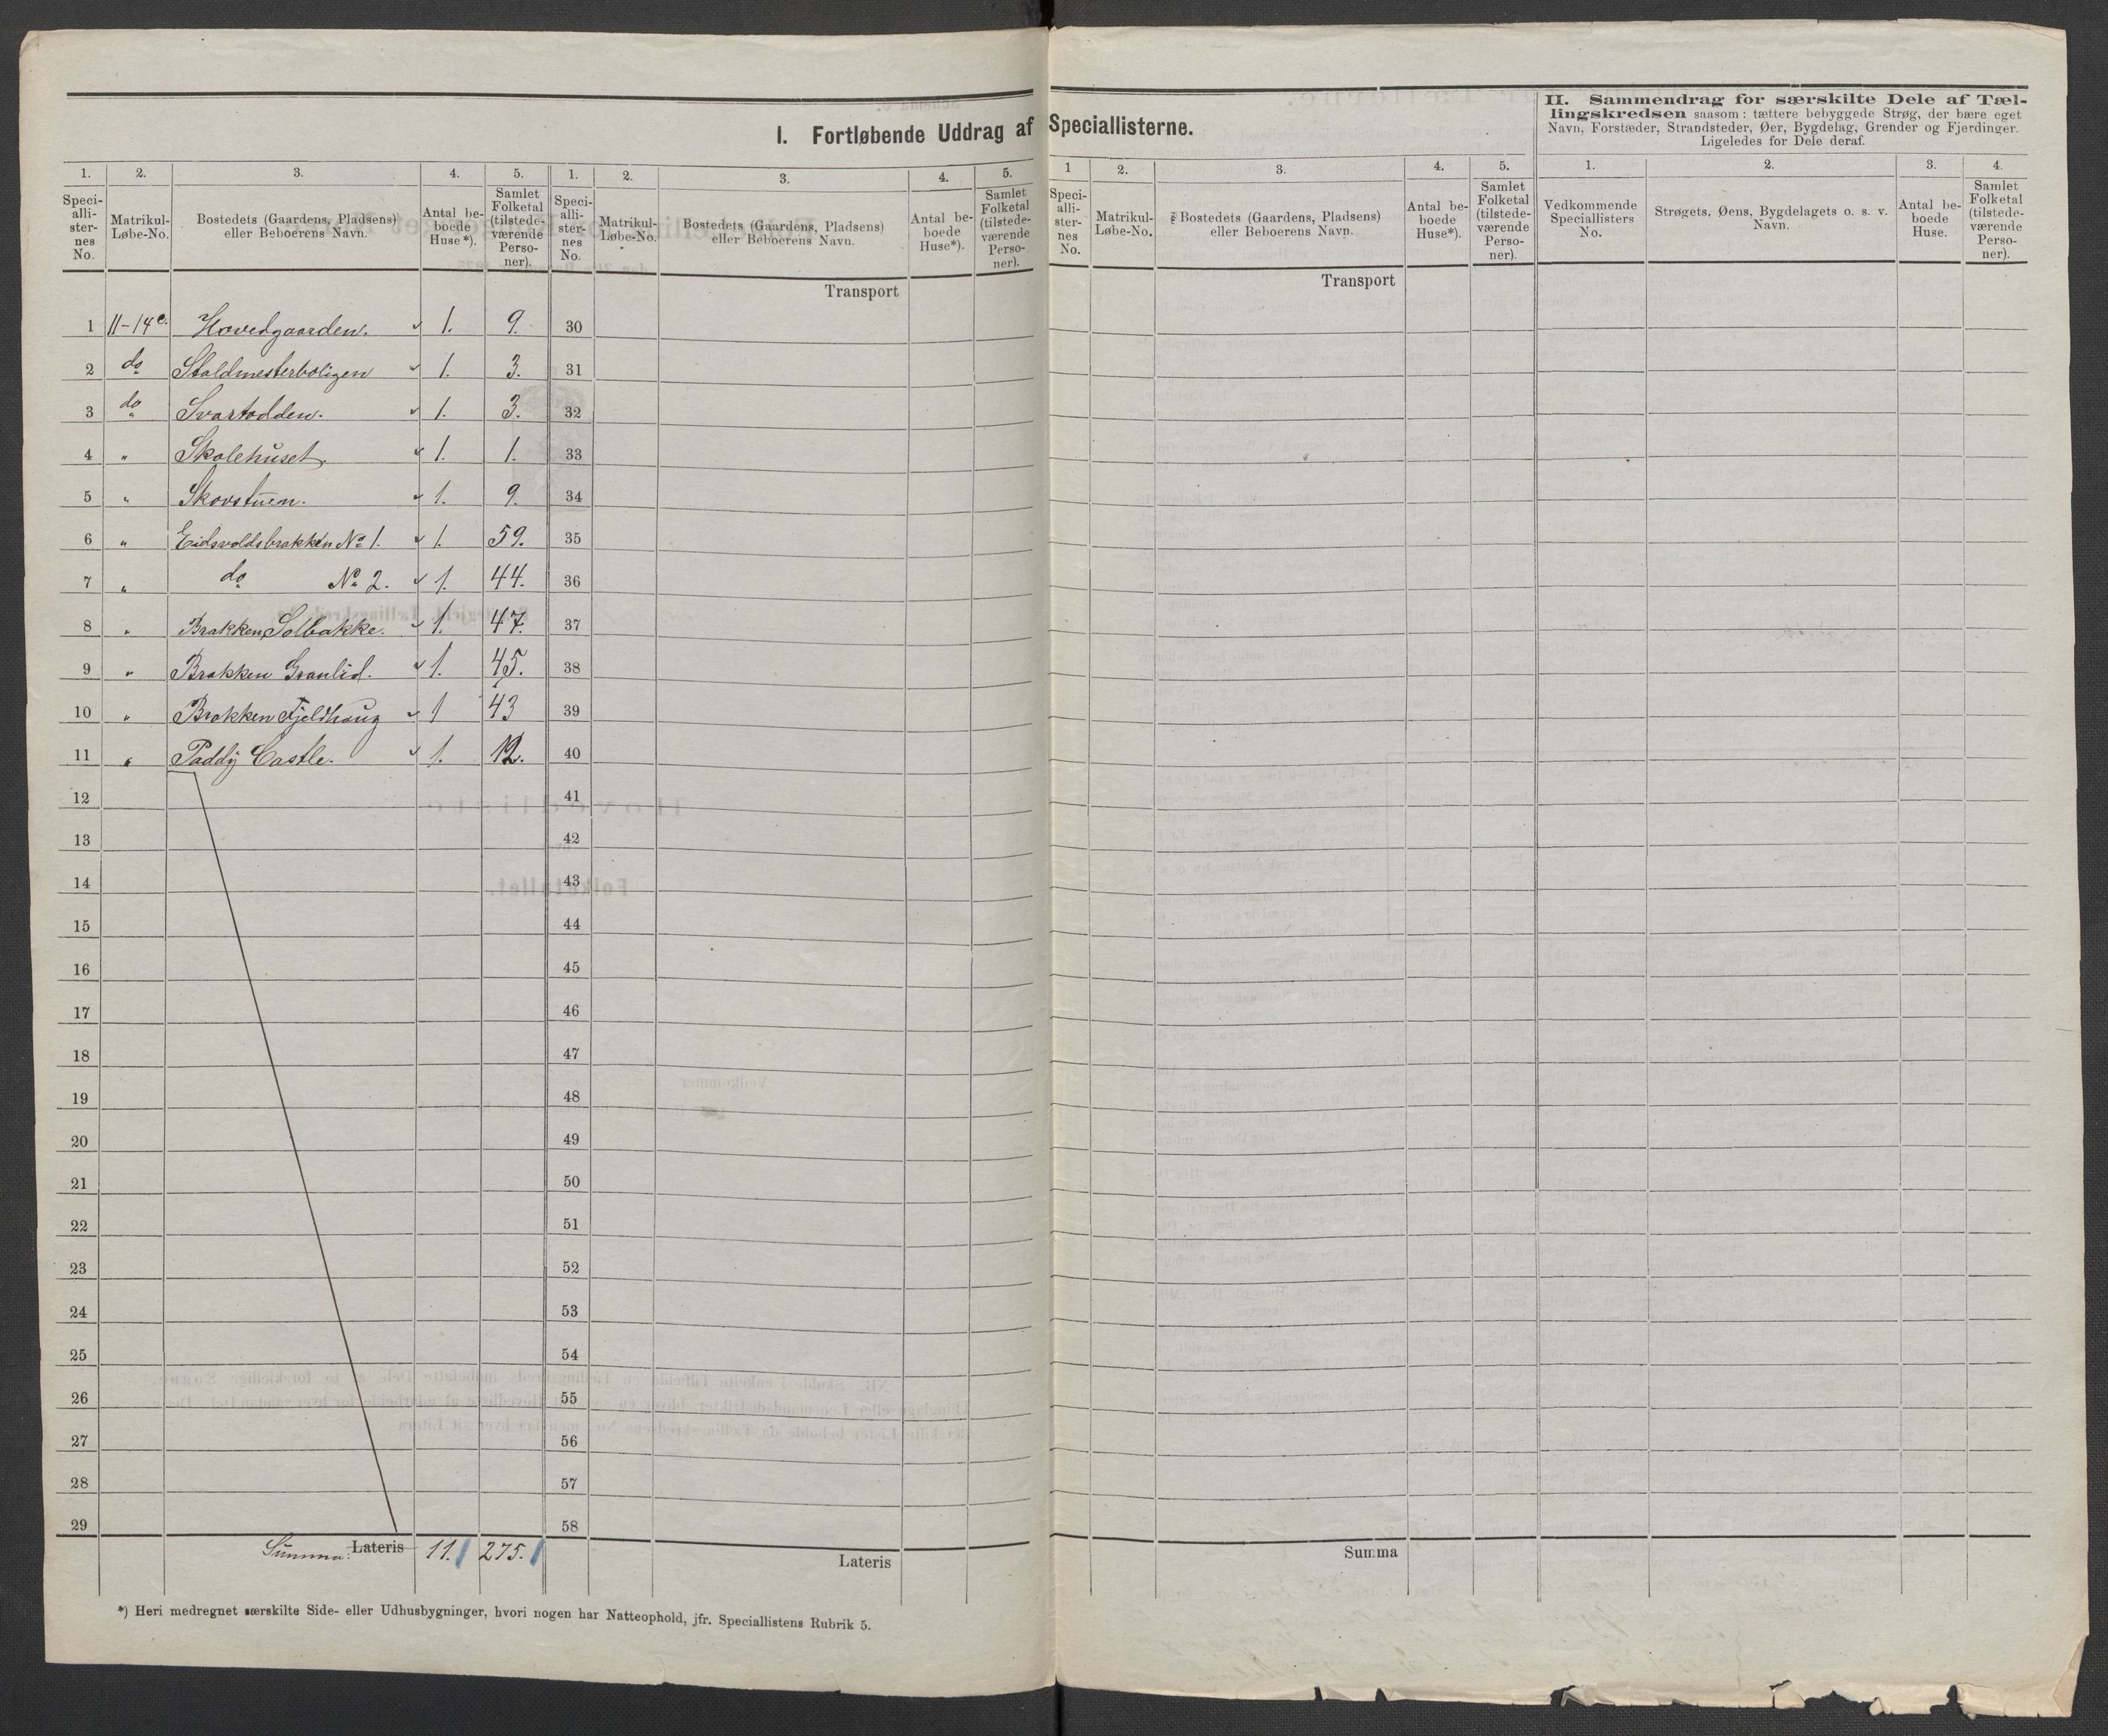 I. Fortløbende Uddrag af Speciallisterne.
II. Sammendrag for særskilte Dele af Tæl-
lingskredsen saasom: tættere bebyggede Strøg, der bære eget
Navn, Forstæder, Strandsteder, Øer, Bygdelag, Grender og Fjerdinger.
Ligeledes for Dele deraf.
1. 2. 3. 4. 5. 1. 2. 3. 4. 5. 1 2. 3. 4. 5. 1. 2. 3. 4.
Speci-
alli-
ster-
nes
No.
Matrikul-
Løbe-No.
Bostedets (Gaardens, Pladsens)
eller Beboerens Navn.
Antal be-
boede
Huse*).
Samlet
Folketal
(tilstede-
værende
Perso-
ner).
Speci-
alli-
ster-
nes
No.
Matrikul-
Løbe-No.
Bostedets (Gaardens, Pladsens)
eller Beboerens Navn.
Antal be-
boede
Huse*).
Samlet
Folketal
(tilstede-
værende
Perso-
ner).
Speci-
alli-
ster-
nes
No.
Matrikul-
Løbe-No.
Bostedets (Gaardens, Pladsens)
eller Beboerens Navn.
Antal be-
boede
Huse*).
Samlet
Folketal
(tilstede-
værende
Perso-
ner).
Vedkommende
Speciallisters
No.
Strøgets, Øens, Bygdelagets o. s. v.
Navn.
Antal be-
boede
Huse.
Samlet
Folketal
(tilstede-
værende
Perso-
ner).
Transport
Transport
1 11-14 c. Hovedgaarden. 1. 9. 30
2 do Staldmesterboligen 1. 3. 31
3 do Svartodden. 1. 3. 32
4 " Skolehuset. 1. 1. 33
5 " Skovstuen. 1. 9. 34
6 " Eidsvoldsbrakken No 1. 1. 59. 35
7 " do No 2. 1. 44. 36
8 " Brakken Solbakke. 1. 47. 37
9 " Brakken Granlid. 1. 45. 38
10 " Brakken Fjeldhaug 1 43 39
11 " Paddy Castle. 1. 12. 40
12 41
13 42
14 43
15 44
16 45
17 46
18 47
19 48
20 49
21 50
22 51
23 52
24 53
25 54
26 55
27 56
28 57
29 58
Summa. Lateris 11. 275.
Lateris
Summa
*) Heri medregnet særskilte Side- eller Udhusbygninger, hvori nogen har Natteophold, jfr. Speciallistens Rubrik 5.